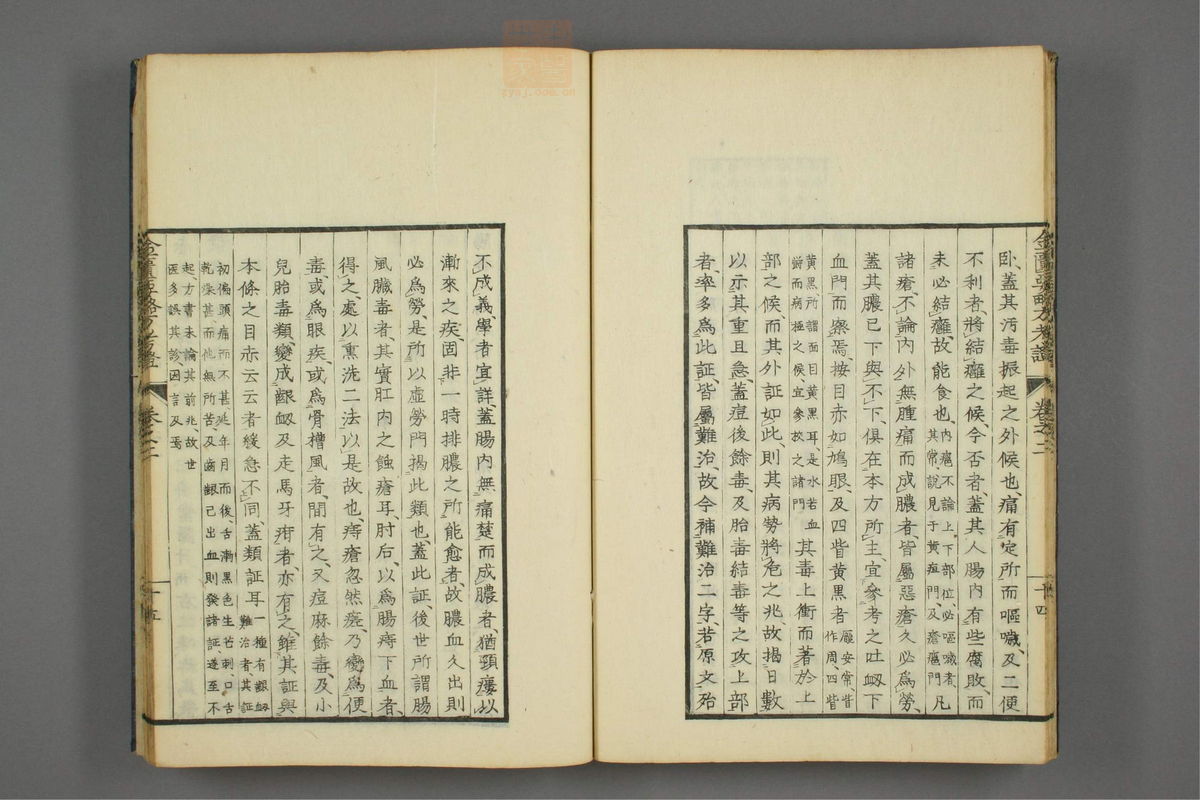 臥、蓋其汚毒振起之外候也、痛有定所而嘔噦、及二便
不利者、將結癰之候、今否者、蓋其人腸內有些腐敗、而
未必結癰、故能食也、內癰不論上下部位、必嘔噦者、其常、說見于黃疸門及瘡癰門、凡
諸瘡、不論內外、無腫痛而成膿者、皆屬惡瘡、久必爲勞、
蓋其膿已下與不下、俱在本方所主、宜參考之吐衂下
血門而案焉、按目亦如鳩眼、及四眥黃黑者、龐安常眥作周、四眥
黃黑、所謂面目黃黑耳、是水若血欝而病極之候、宜參挍之諸門、其毒上衝、而著於上
部之候、而其外証如此、則其病勢將危之兆、故揭日數
以示其重且急、蓋痘後餘毒、及胎毒結毒等之攻上部
者、率多爲此証、皆屬難治、故今補難治二字、若原文殆
金匱要略方考證 卷之二 十四
不成義、學者宜詳、蓋腸內無痛楚、而成膿者、猶頸癭、以
漸來之疾、固非一時排膿之所能愈者、故膿血久出、則
必爲勞、是所以虛勞門揭此類也、蓋此証、後世所謂腸
風臟毒者、其實肛內之蝕瘡耳、肘后以爲腸痔下血者、
得之處、以熏洗二法、以是故也、痔瘡忽然瘥、乃變爲便
毒、或爲眼疾、或爲骨槽風者、間有之、又痘麻餘毒、及小
兒胎毒類、變成齦衂及走馬牙疳者、亦有之、雖其証與
本條之目亦云云者緩急不同、蓋類証耳、一種有齦衂難治者、其証
初偏頭痛而不甚、延年月而後、舌漸黑色生芒刺、口舌乾燥甚、而他無所苦、及齒齦已出血、則發諸証、遂至不
起、方書未論其前兆、故世醫多誤其診、因言及焉、
金匱要略方考證 卷之二 十五